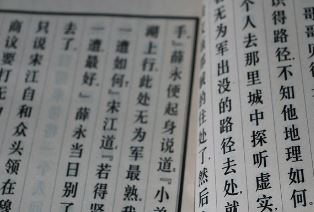 哥哥
识得路径.不知他地理如何.
个人去那里城中探听虚实,
无为军出没的路径去处.就
的住处了.然后
手.』薛永便起身说道『小弟
湖上行.此处无为军最熟.我
一遭如何』宋江道『若得贤
一遭最好.』薛永当日别了
去了.
只说宋江自和众头领在穆
商议要打无